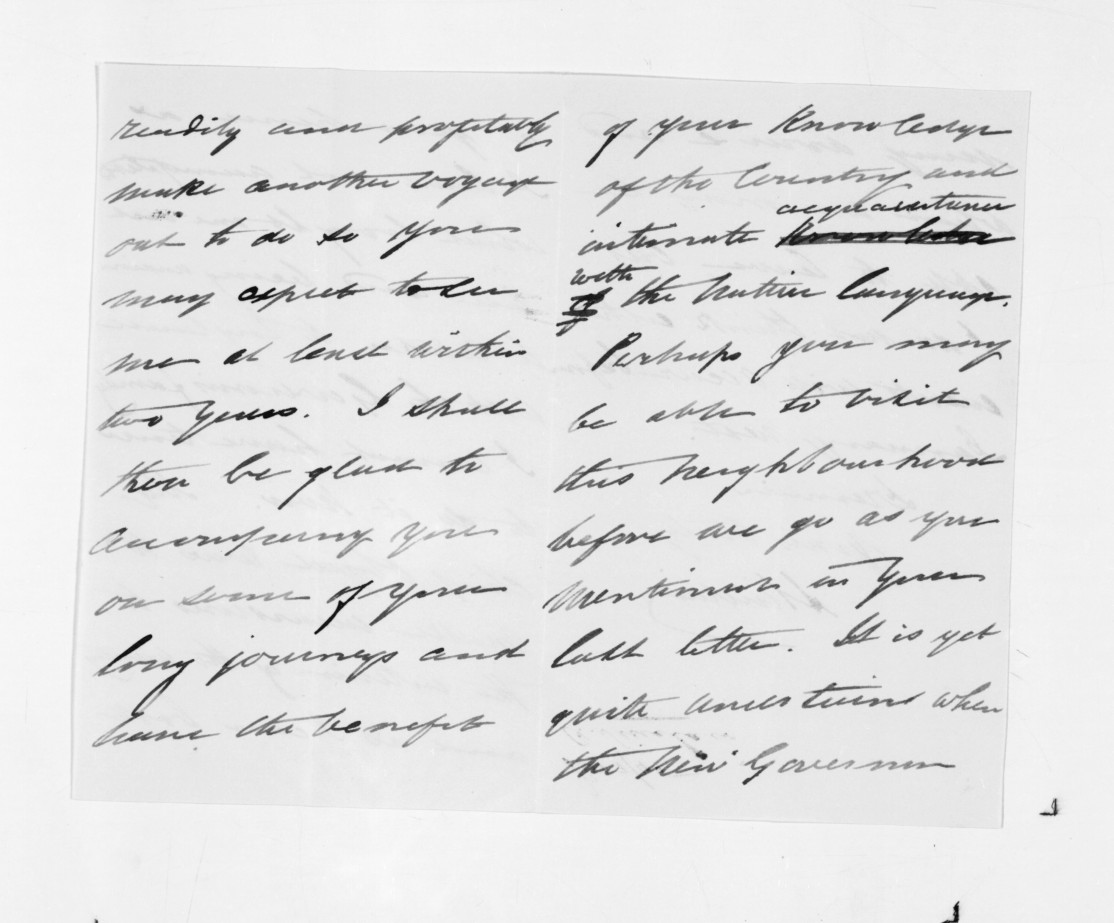 readily and profitably
make another voyage
out to do so you
may expect to see
me at least within
two years. I shall
then be glad to
accompany you
on some of your
long journeys and
have the benefit
of your Knowledge
of the Country and
acquaintance
intimate Knowledge
with
of the Native language.
Perhaps you may
be able to visit
this neighbourhood
before we go as you
mentioned in your
last letter. It is yet
quite uncertain when
the New Governor